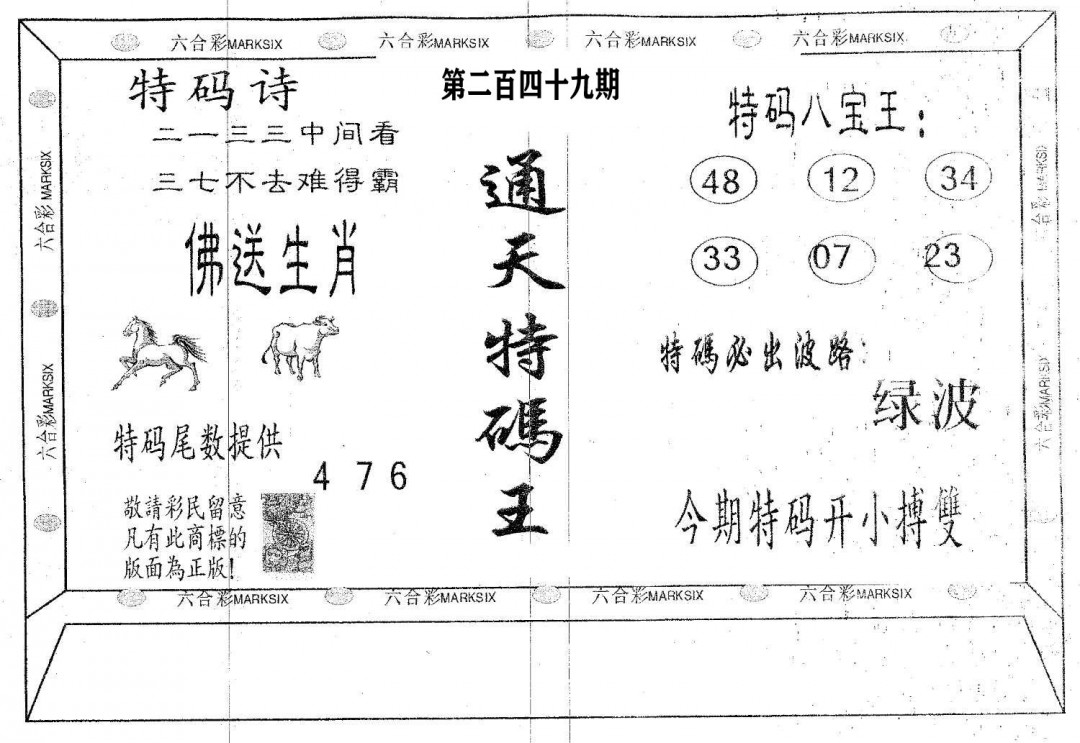 六合彩MARKSIX 六合彩MARKSIX 六合彩MARKSIX 六合彩MARKSIX
第二百四十九期
特码诗
二一三三中间看
三七不去难得霸
佛送生肖
特码尾数提供
4 7 6
敬請彩民留意
凡有此商標的
版面為正版!
通天特碼王
特码八宝王:
48 12 34
33 07 23
特碼必出波路:
绿波
今期特码开小搏雙
六合彩 MARKSIX
六合彩MARKSIX
六合彩 MARKSIX
六合彩MARKSIX
六合彩MARKSIX 六合彩MARKSIX 六合彩MARKSIX 六合彩MARKSIX